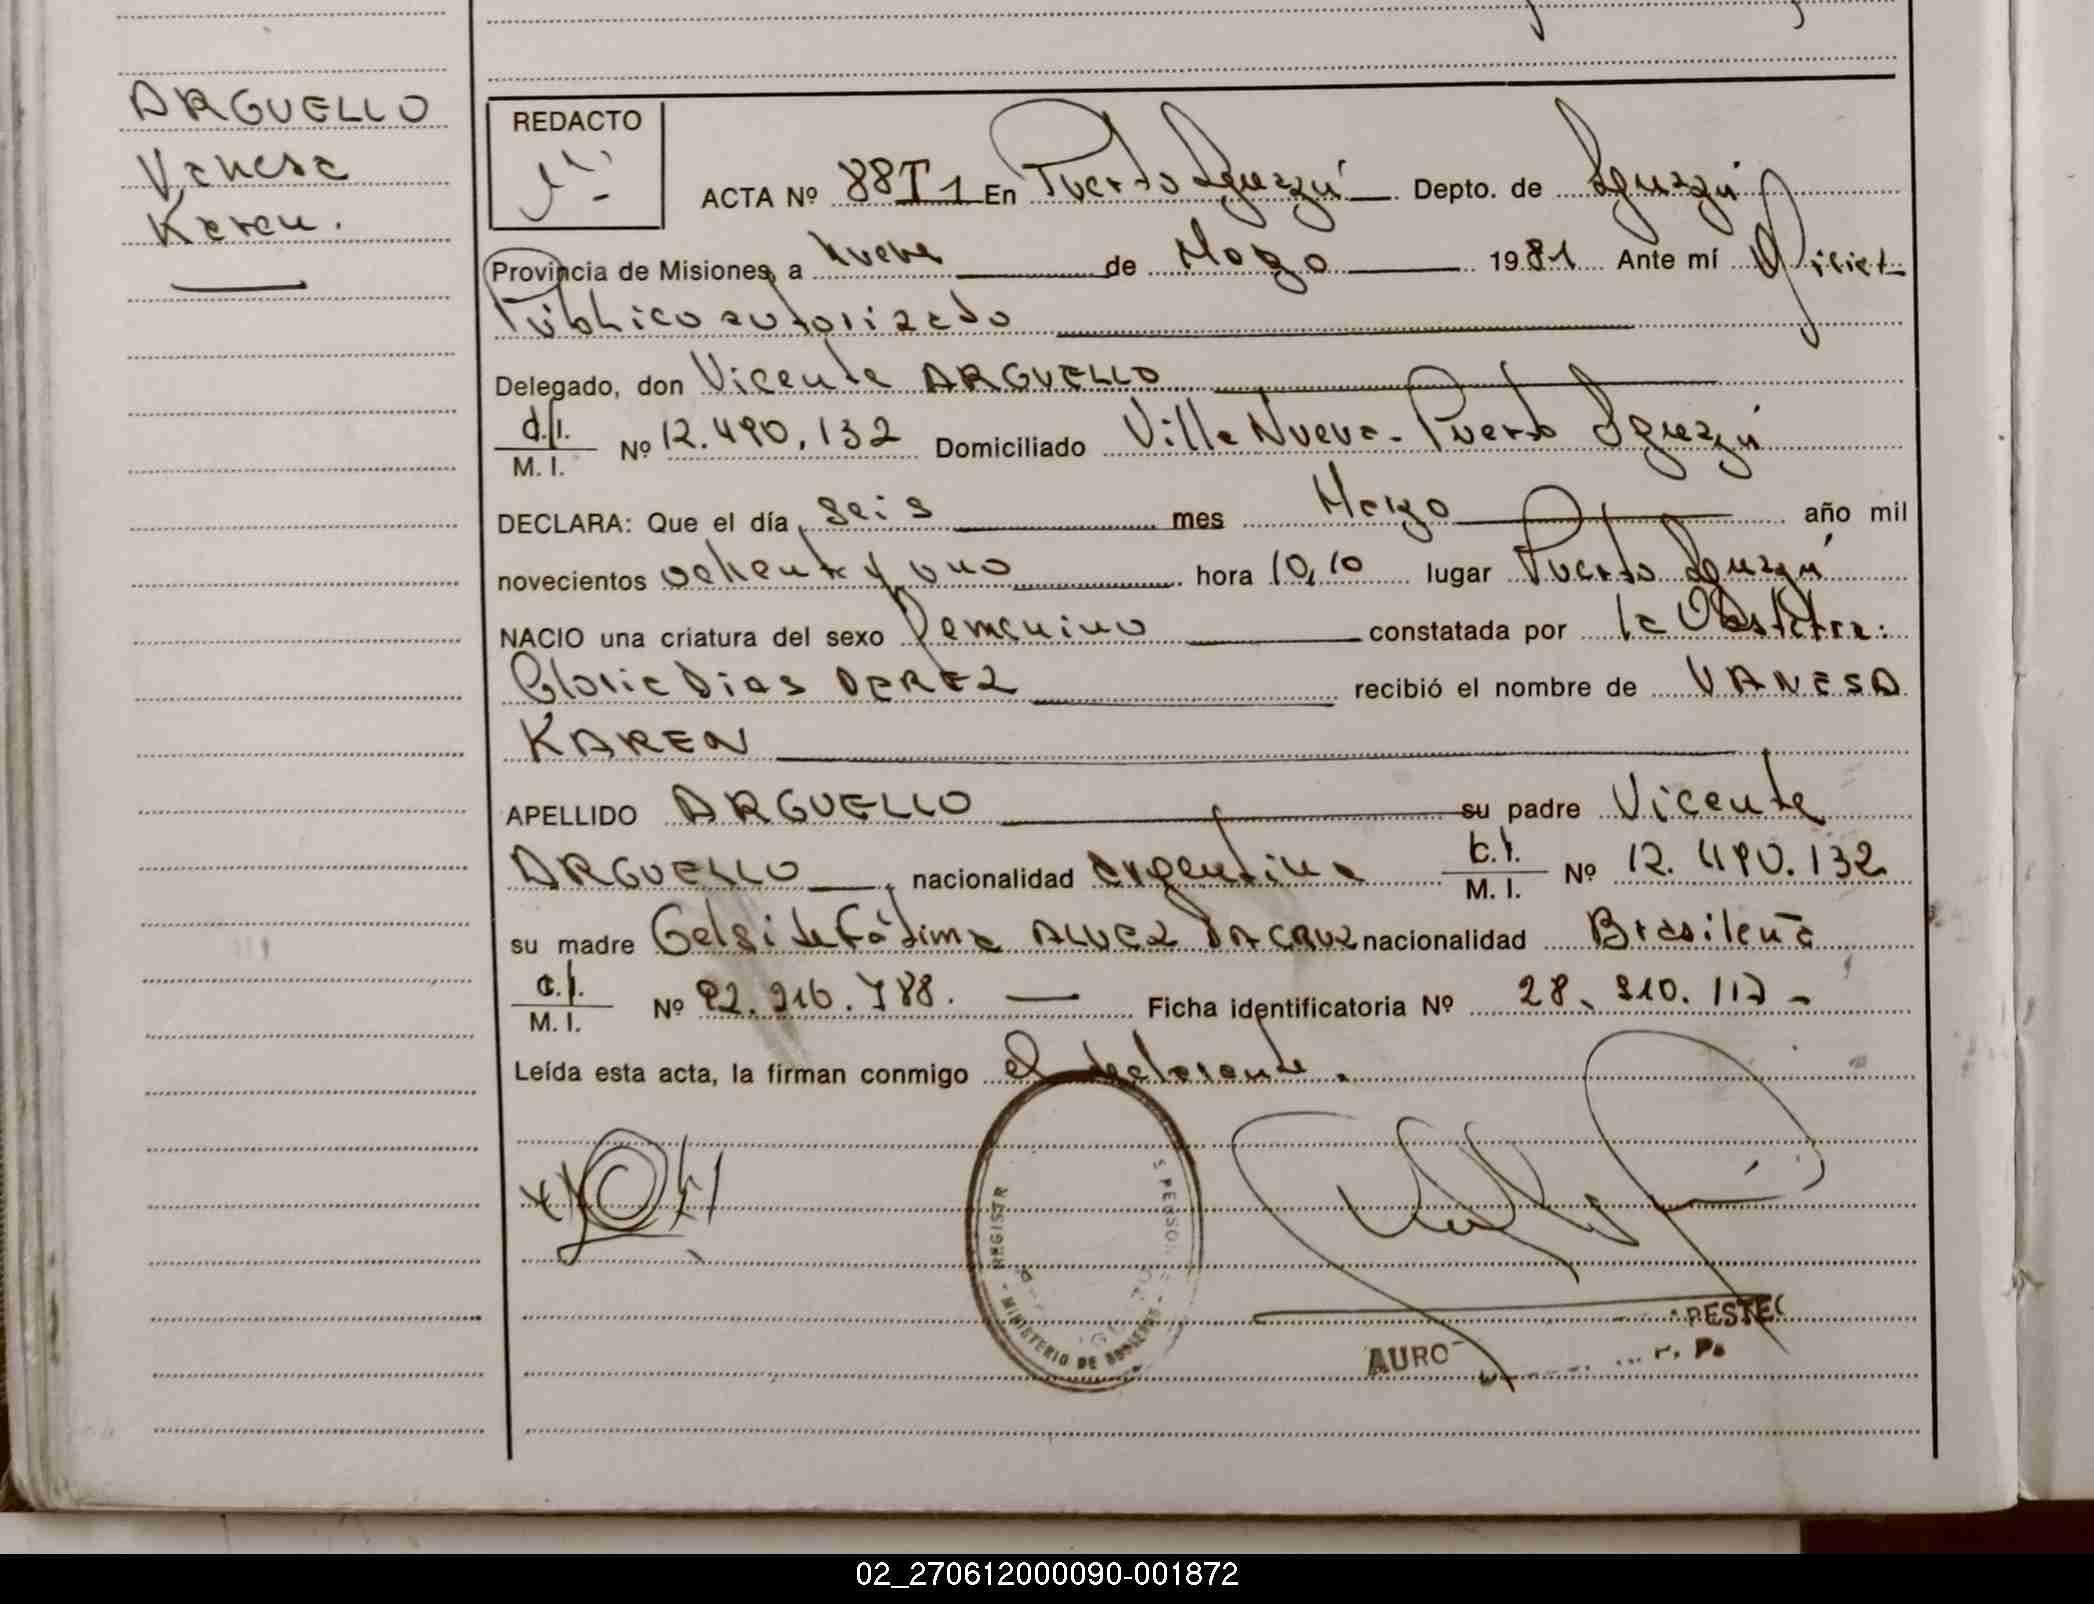 ARGUELLO
Vanesa
Karen.
REDACTO
ACTA Nº 88T1 En Puerto Iguazú Depto. de Iguazú
Provincia de Misiones, a nueve de Mayo 1981 Ante mí Oficial
Público autorizado
Delegado, don Vicente ARGUELLO
d.I. M. I. Nº 12.490.132 Domiciliado Villa Nueva - Puerto Iguazú
DECLARA: Que el día seis mes Mayo año mil
novecientos ochenta y uno hora 10,10 lugar Puerto Iguazú
NACIO una criatura del sexo Femenino constatada por la Obstetra:
Gloria Dias PEREZ recibió el nombre de VANESA
KAREN
APELLIDO ARGUELLO su padre Vicente
ARGUELLO, nacionalidad argentina c.I. M. I. Nº 12.490.132
su madre Gelsi de Fátima ALVEZ DA CRUZ nacionalidad Brasileña
c.I. M. I. Nº 92.216.788. Ficha identificatoria Nº 28.310.117 -
Leída esta acta, la firman conmigo el declarante.
REGISTR
S PERSON
- MINISTERIO DE GOBIERNO -
AURO
RESTE
P.
02_270612000090-001872